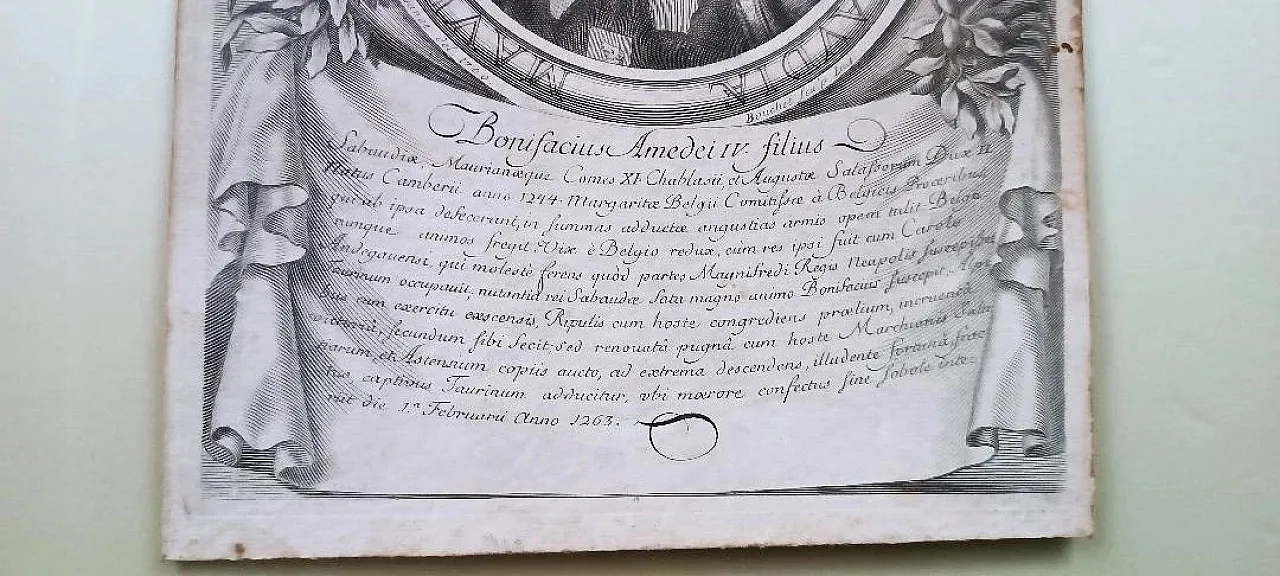 del. 1720
MAV
AVDIÆ
Boucher
Bonifacius Amedei IV. filius
Sabaudiæ, Maurianæque Comes XI. Chablasii, et Augustæ Salassorum Dux II
Natus Camberii anno 1244. Margaritæ Belgii Comitissæ à Belgicis Proceribus,
qui ab ipsa defecerant, in summas adductæ angustias armis opem tulit Belga
rumque animos fregit. Vix è Belgio redux, cum res ipsi fuit cum Carolo
Andegavensi, qui molestè ferens quòd partes Magnifredi Regis Neapolis susceperat
Taurinum occupauit, nutantia rei Sabaudæ fata magno animo Bonifacius suscepit, Alpi
bus cum exercitu excensis, Ripulis cum hoste congrediens prælium, incruentâ
victoriâ, secundum sibi fecit; sed renouatâ pugnâ cum hoste Marchionis Salu
tiarum, et Astensium copiis aucto, ad extrema descendens, illudente fortunâ frac
tus, captiuus Taurinum adducitur, vbi mœrore confectus sine sobole inte-
riit die 1.ª Februarii Anno 1263.